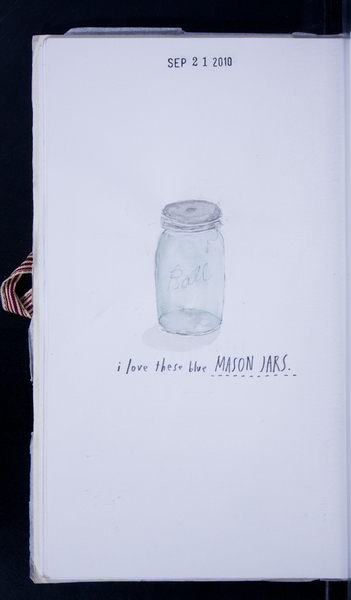 SEP 21 2010
Ball
i love these blue MASON JARS.